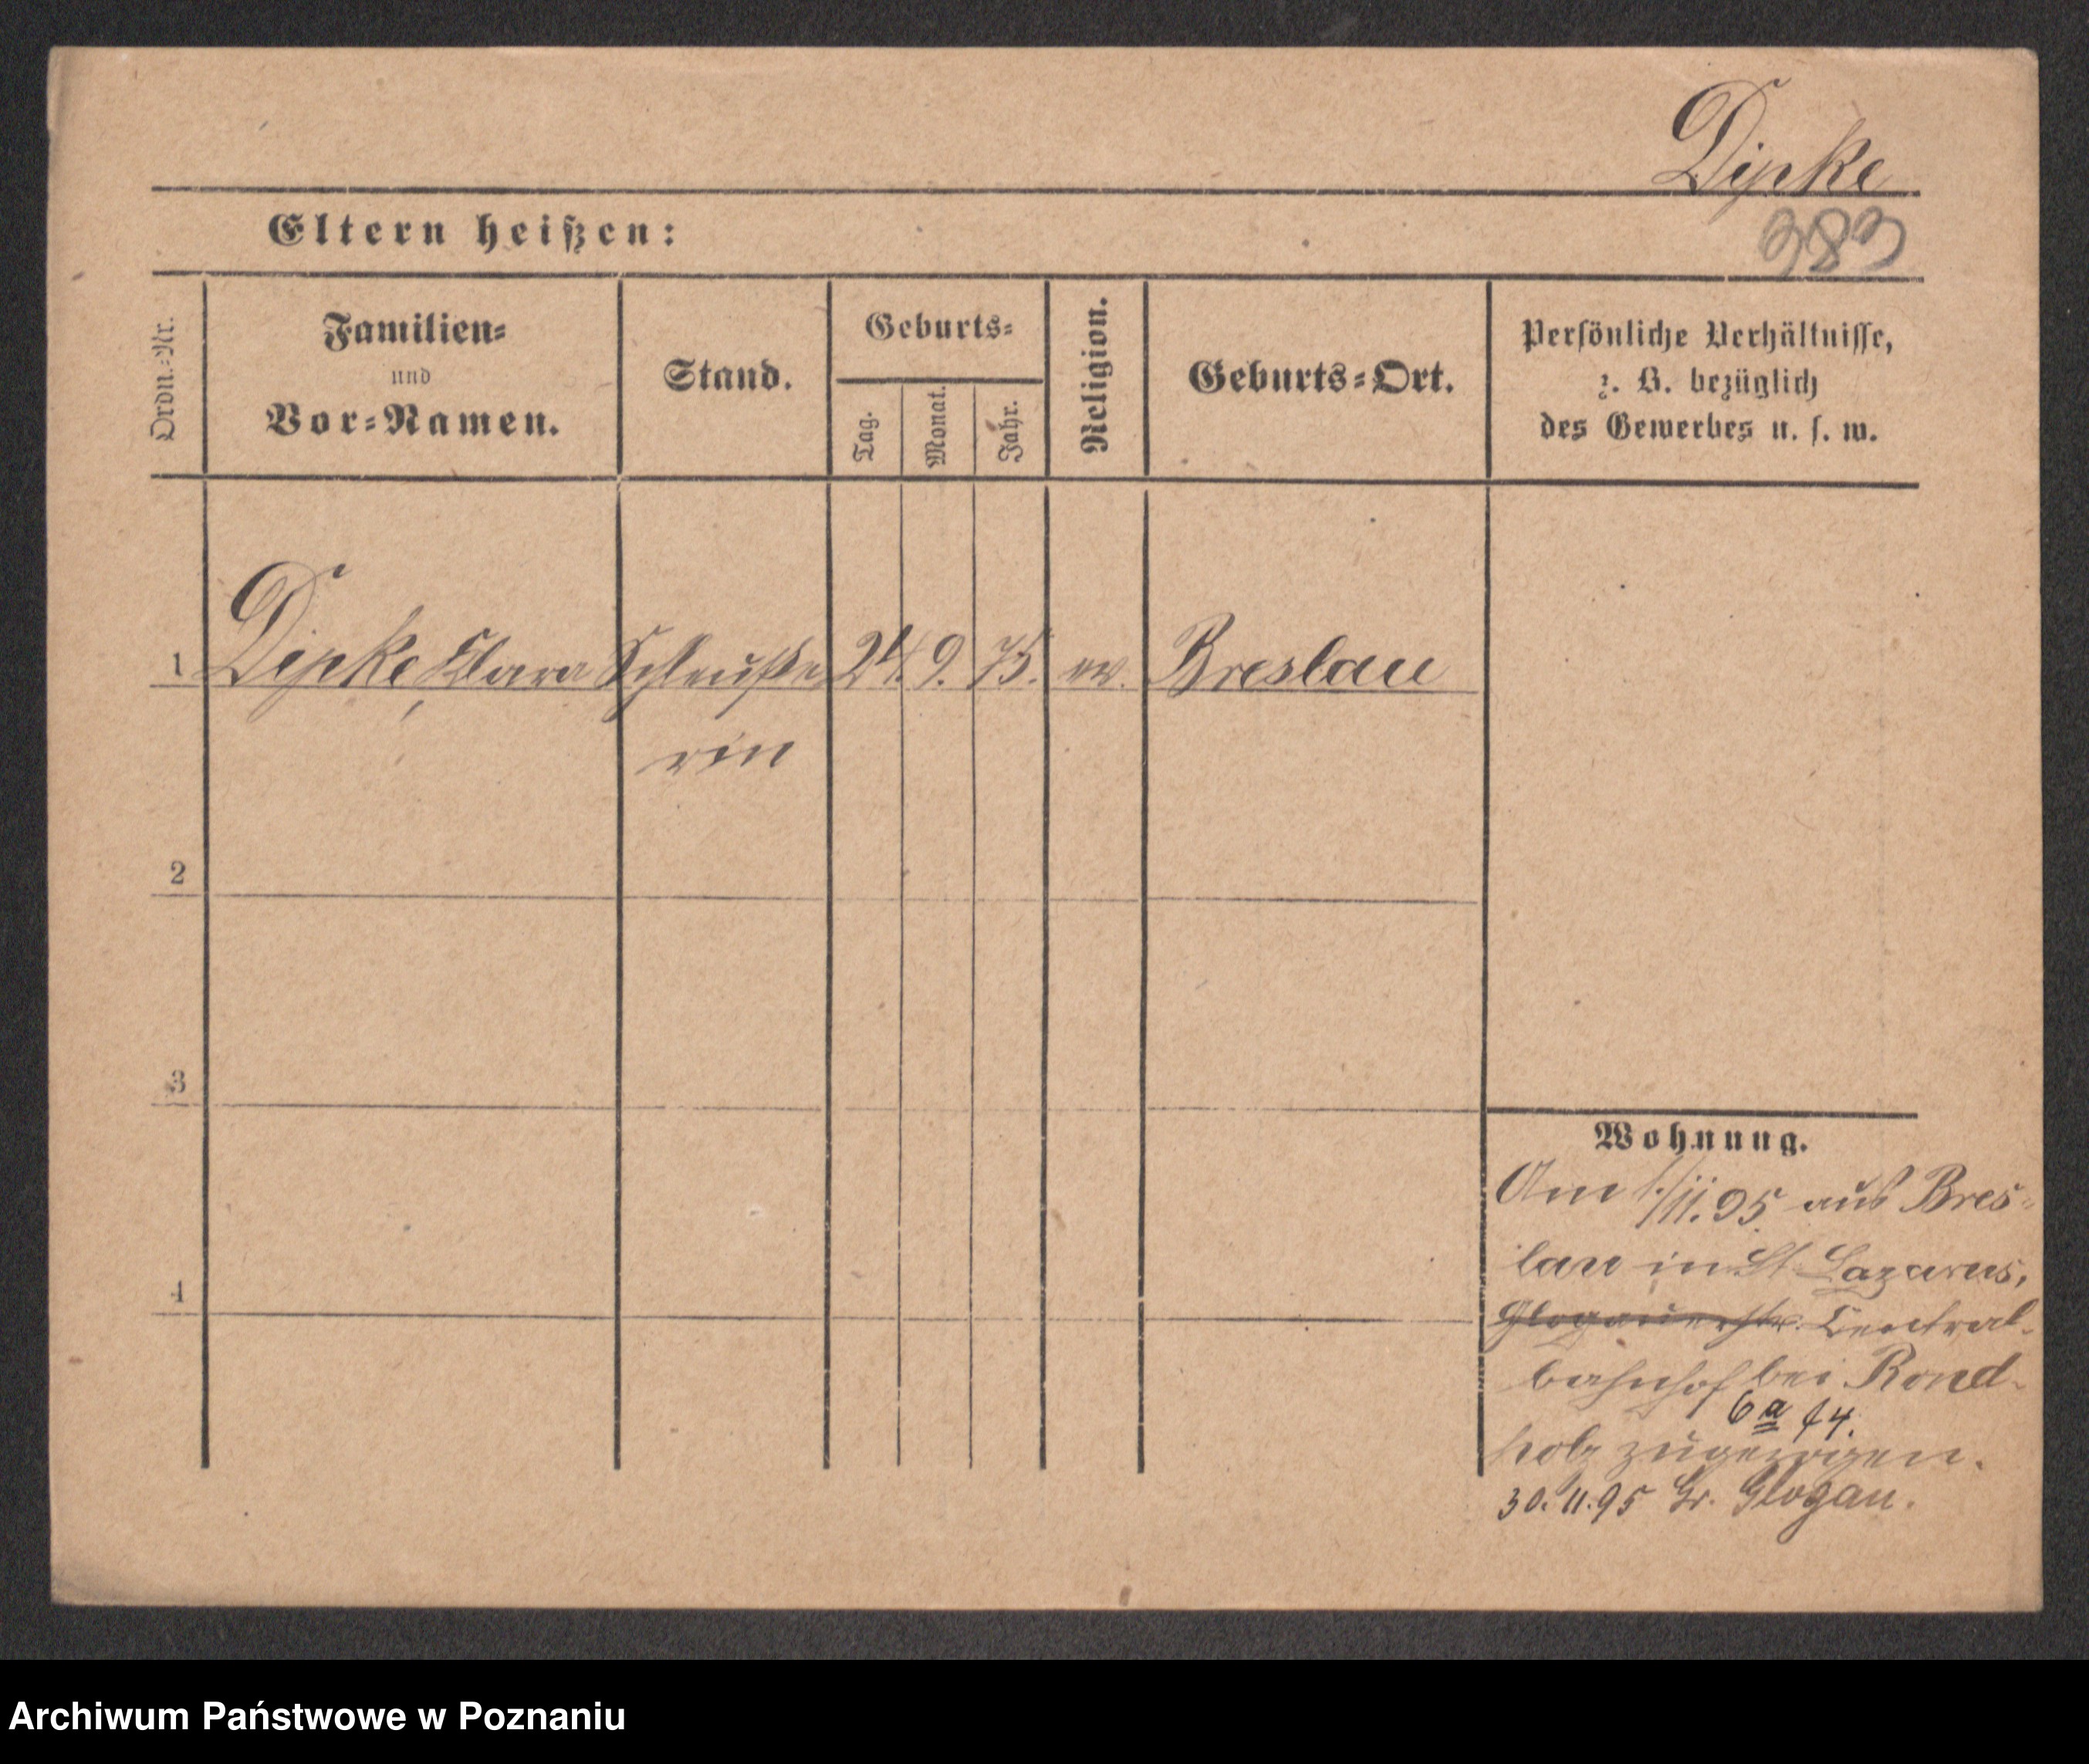 Dipke
383
Eltern heißen:
Ordn.-Nr.
Familien-
und
Vor-Namen.
Stand.
Geburts-
Tag.
Monat.
Jahr.
Religion.
Geburts-Ort.
Persönliche Verhältnisse,
z. B. bezüglich
des Gewerbes u. s. w.
1 Dipke, Clara Schleuße 24. 9. 75. ev. Breslau
rin
2
3
4
Wohnung.
Am 1./11. 95 aus Bres-
lau in St. Lazarus,
Glogauerstr. Central-
bahnhof bei Rond-
6a
holz zugezogen.
30. 11. 95 Gr. Glogau.
Archiwum Państwowe w Poznaniu